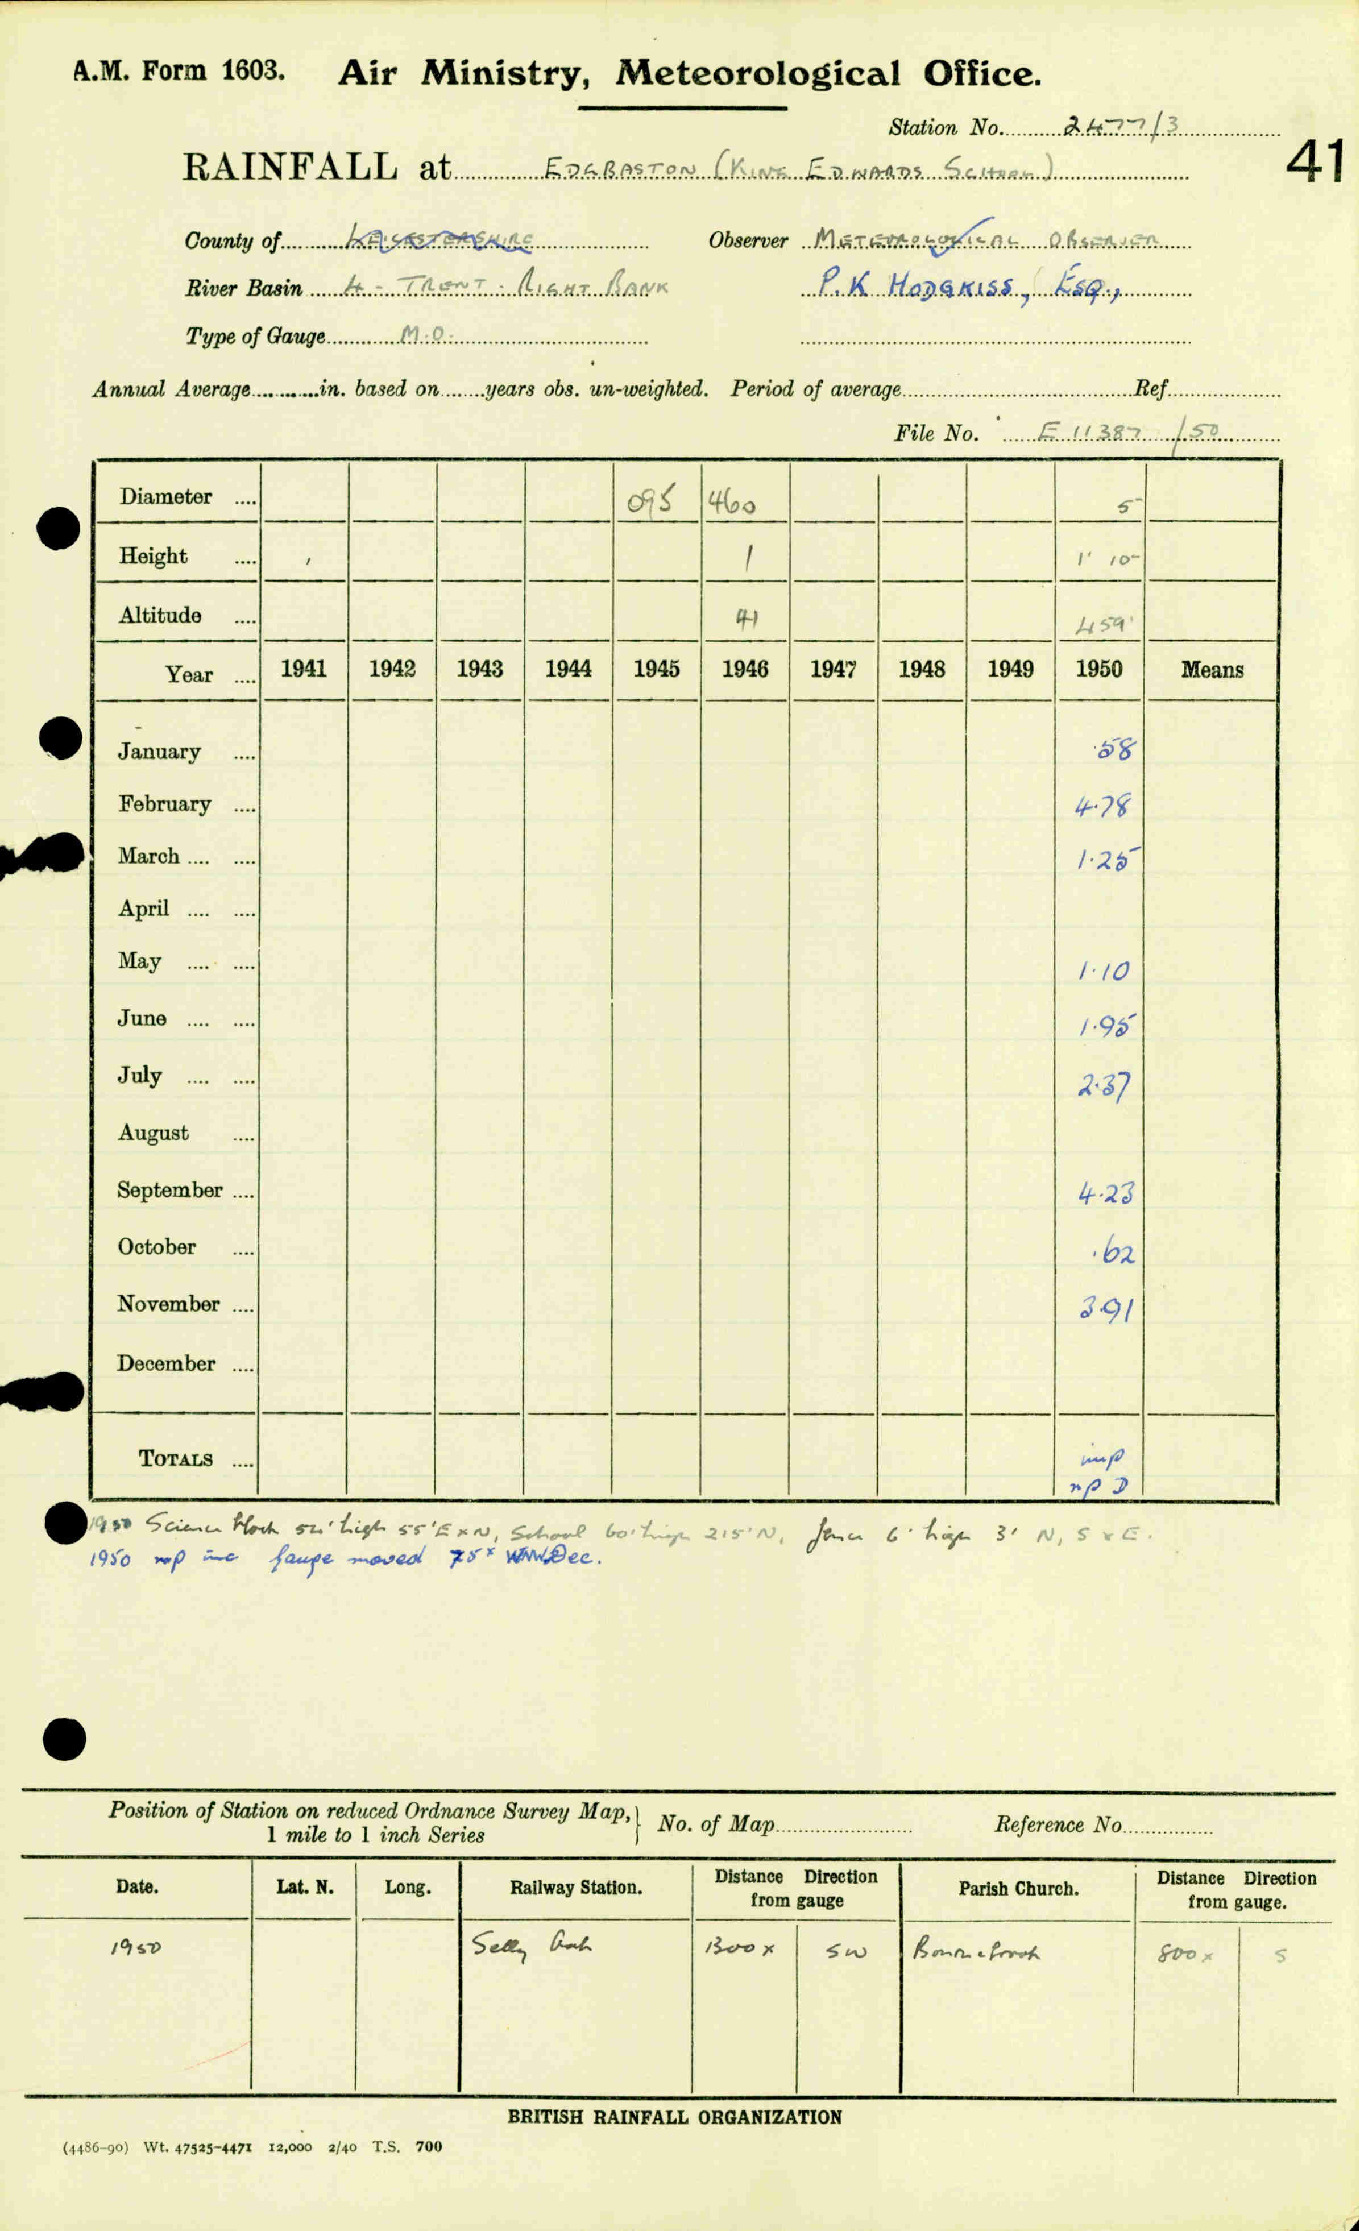 A.M. Form 1603. Air Ministry, Meteorological Office.
Station No. 2477/3
41
RAINFALL at EDGBASTON (KING EDWARDS SCHOOL)
County of LEICESTERSHIRE Observer METEOROLOGICAL OBSERVER
River Basin 4 - TRENT - RIGHT BANK P.K HODGKISS, ESQ.,
Type of Gauge M.O.
Annual Average in. based on years obs. un-weighted. Period of average Ref.
File No. E 11387 /50
Diameter 095 460 5
Height 1 1' 10"
Altitude 41 459'
Year 1941 1942 1943 1944 1945 1946 1947 1948 1949 1950 Means
January .58
February 4.78
March 1.25
April
May 1.10
June 1.95
July 2.37
August
September 4.23
October .62
November 3.91
December
TOTALS imp
np D
1950 Science block 52' high 55' E x N, School 60' high 215' N, fence 6' high 3' N, S & E.
1950 np inc gauge moved 75x WNW Dec.
Position of Station on reduced Ordnance Survey Map, 1 mile to 1 inch Series No. of Map Reference No.
Date. Lat. N. Long. Railway Station. Distance Direction from gauge Parish Church. Distance Direction from gauge.
1950 Selly Oak 1300 x SW Bournebrook 800 x S
BRITISH RAINFALL ORGANIZATION
(4486-90) Wt. 47525-4471 12,000 2/40 T.S. 700